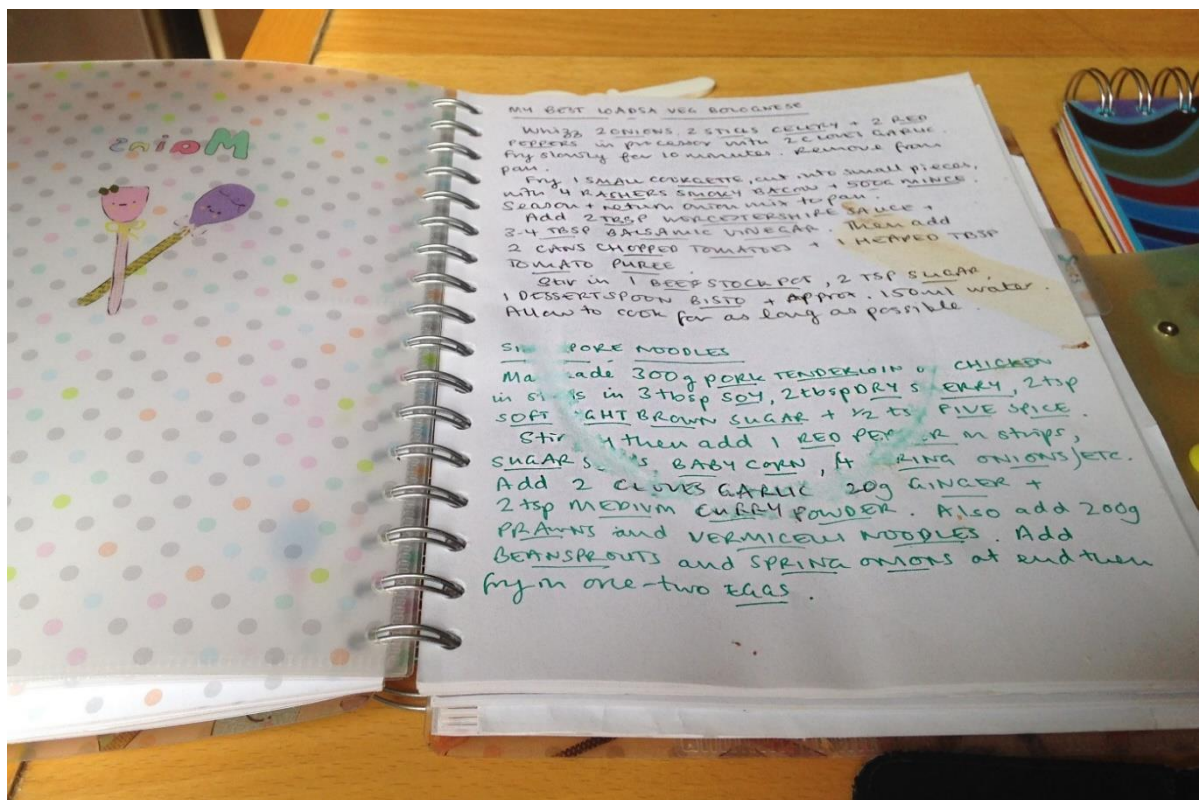 Mains
MY BEST LOADSA VEG BOLOGNESE
Whizz 2 ONIONS, 2 STICKS CELERY + 2 RED
PEPPERS in processor with 2 CLOVES GARLIC.
Fry slowly for 10 minutes. Remove from
pan.
Fry 1 SMALL COURGETTE, cut into small pieces,
with 4 RASHERS SMOKY BACON + 500G MINCE.
Season + return onion mix to pan.
Add 2 TBSP WORCESTERSHIRE SAUCE +
3-4 TBSP BALSAMIC VINEGAR. Then add
2 CANS CHOPPED TOMATOES + 1 HEAPED TBSP
TOMATO PUREE.
Stir in 1 BEEF STOCK POT, 2 TSP SUGAR,
1 DESSERTSPOON BISTO + APPROX. 150ml water.
Allow to cook for as long as possible.
PORE NOODLES
300g PORK TENDERLOIN CHICKEN
in in 3 tbsp SOY, 2 tbsp DRY ERRY, 2 tsp
SOFT GHT BROWN SUGAR + ½ ts FIVE SPICE.
Stir then add 1 RED PEPPER in strips,
SUGAR BABY CORN, 4 RING ONIONS/ETC.
Add 2 CLOVES GARLIC 20g GINGER +
2 tsp MEDIUM CURRY POWDER. Also add 200g
PRAWNS and VERMICELLI NOODLES. Add
BEANSPROUTS and SPRING ONIONS at end then
fry in one-two EGGS.